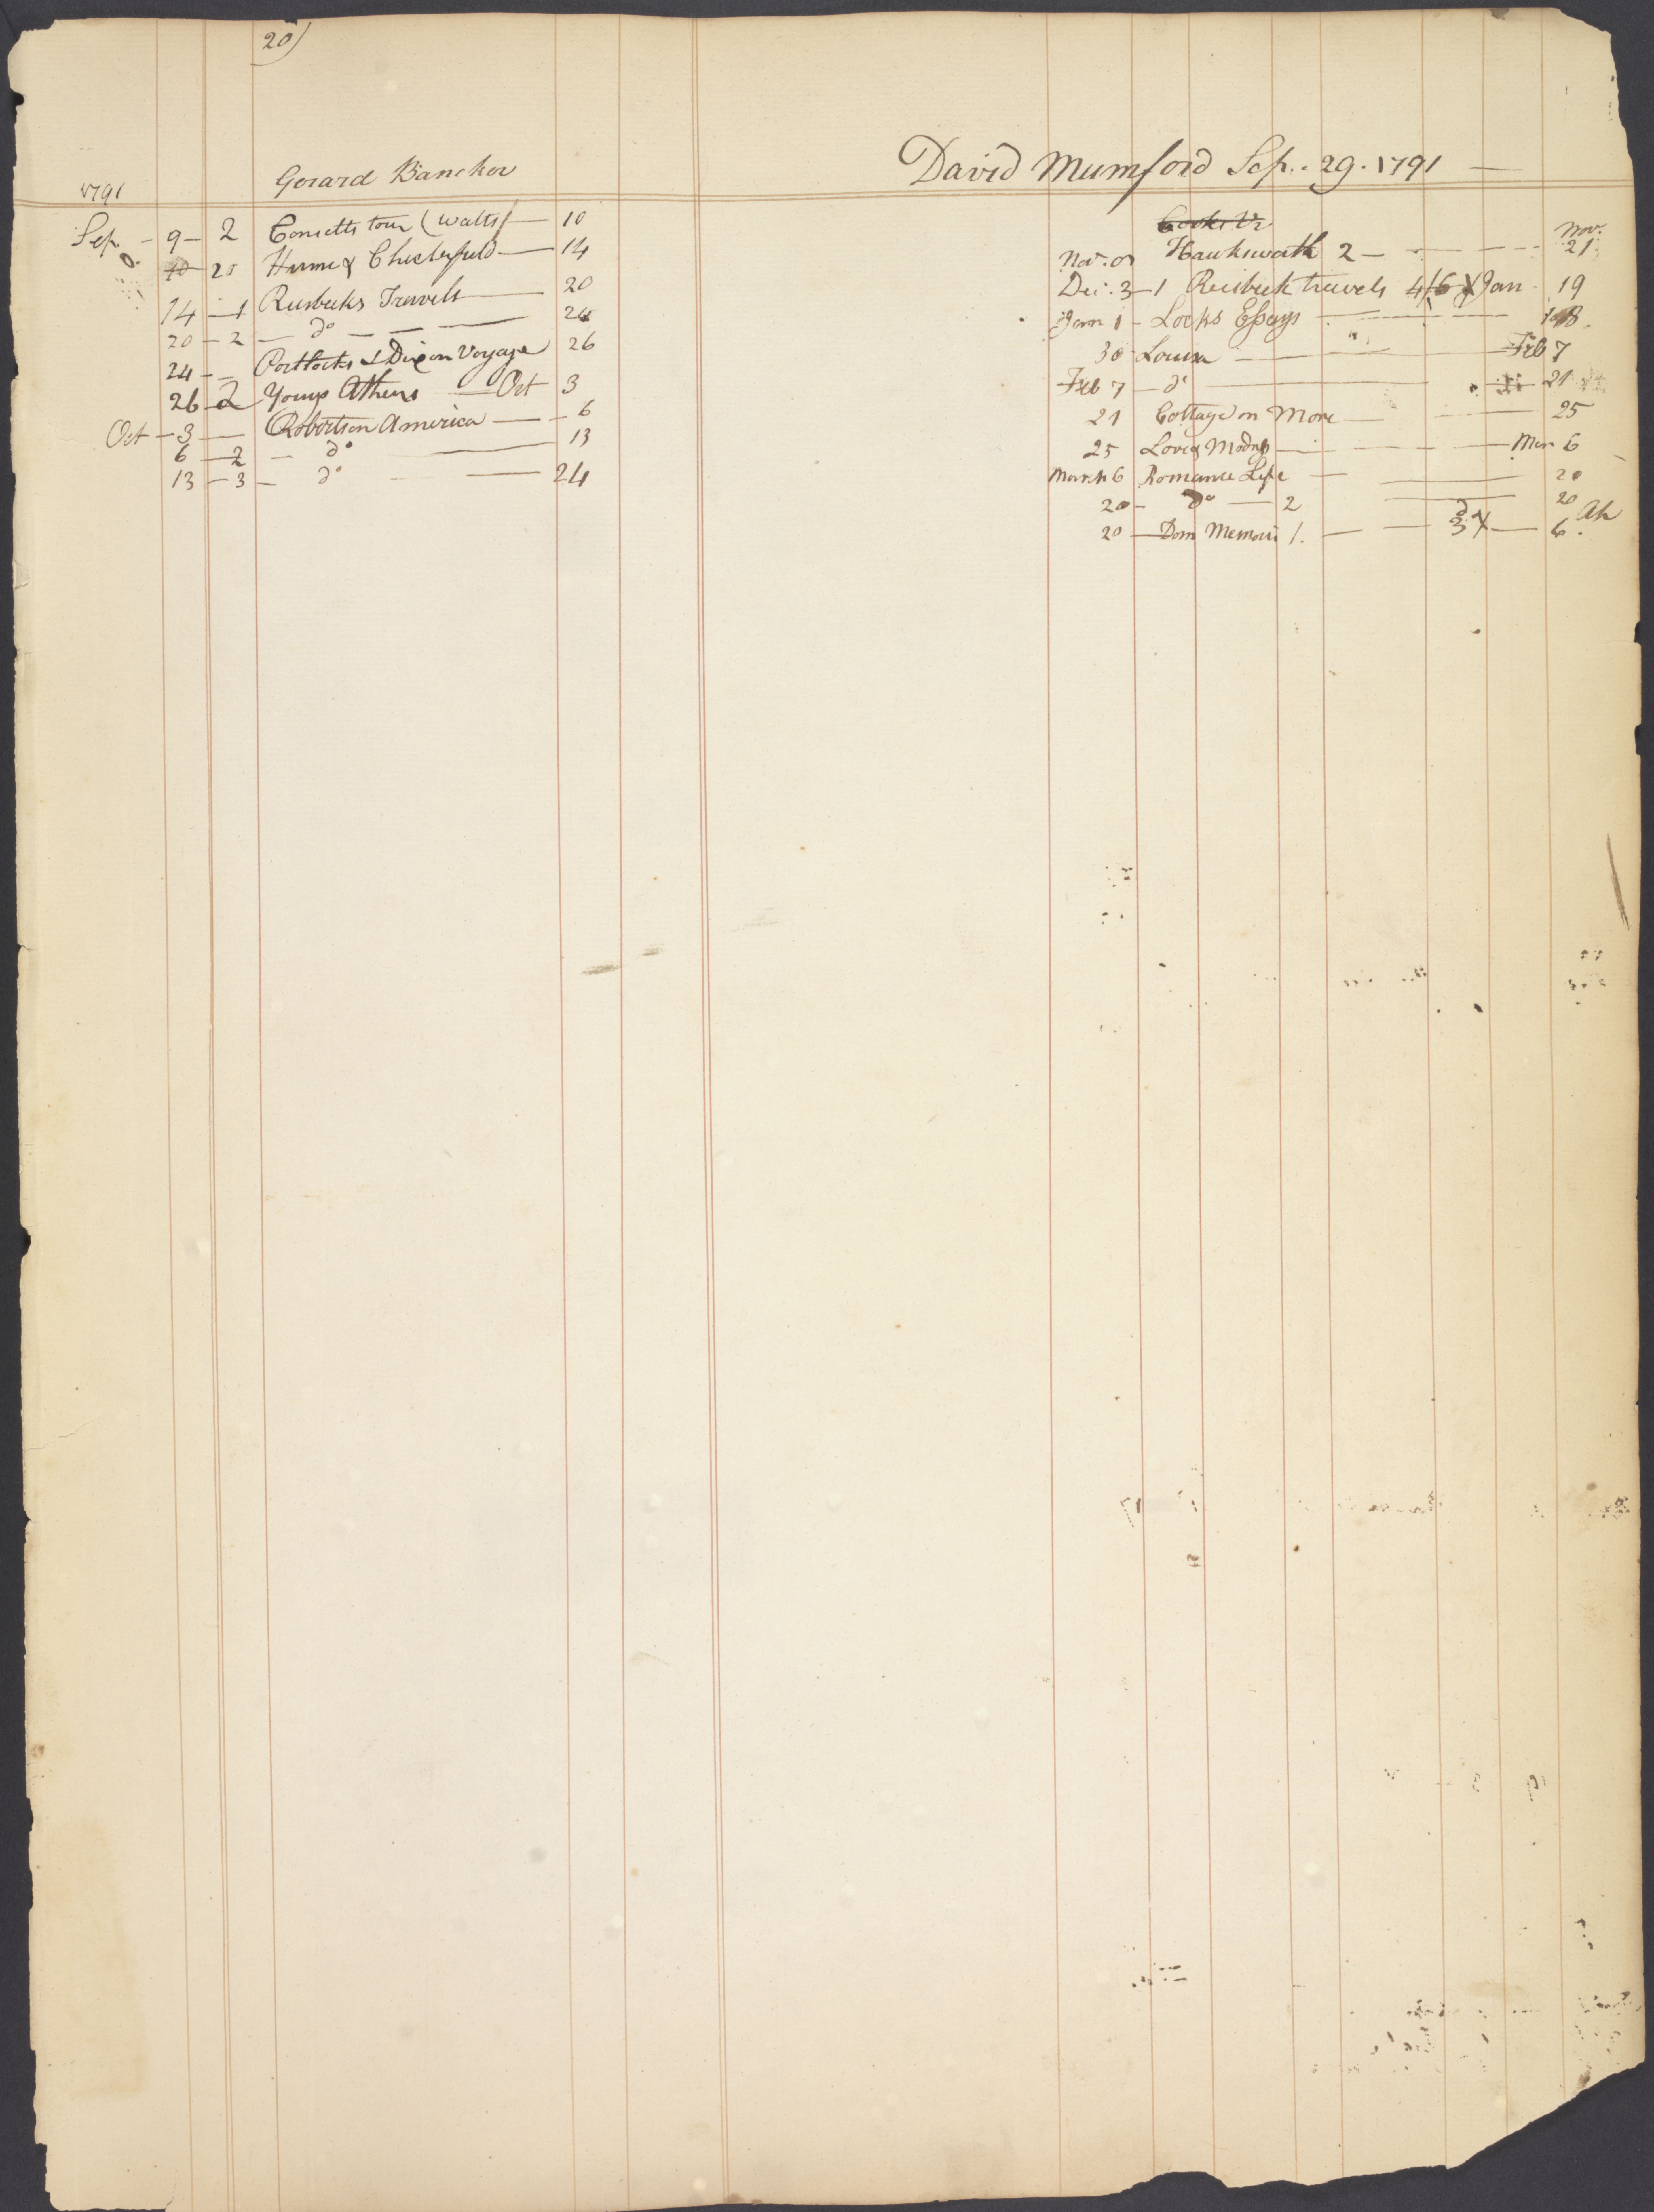 20)
1791 Gerard Bancker
Sep. - 9 - 2 Consetts tour (Watts) — 10
10 20 Hume & Chesterfield — 14
14 — 1 Riesbecks Travels — 20
20 — 2 — do — — — 24
24 — — Portlocks & Dixon Voyage 26
26 — 2 Youngs Athens — Oct 3
Oct — 3 — Robertson America — — 6
6 — 2 — do — 13
13 — 3 — do — — 24
David Mumford Sep. 29. 1791 —
Cooks V.
Nov. Hauksworth 2 — — — Nov. 21
Dec. 3 — 1 Reisbeck travels 4/6 X Jan 19
Jann 1 — Locks Essays — — 18
30 Louisa — — Feb 7
Feb 7 — do — 21
21 Cottage on More — — 25
25 Love & Madness — — — Mar 6
March 6 Romance Life — — 20
20 — do — 2 — 20
20 — Dom Memoirs 1. — — 3 X — 6.